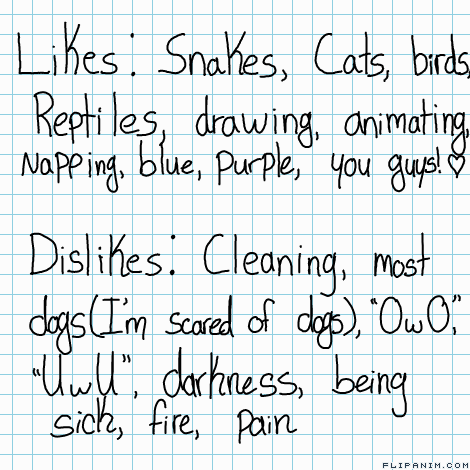 Likes: Snakes, Cats, birds,
Reptiles, drawing, animating,
Napping, blue, purple, you guys! ♡
Dislikes: Cleaning, most
dogs(I'm scared of dogs), "OwO",
"UwU", darkness, being
sick, fire, pain
FLIPANIM.COM